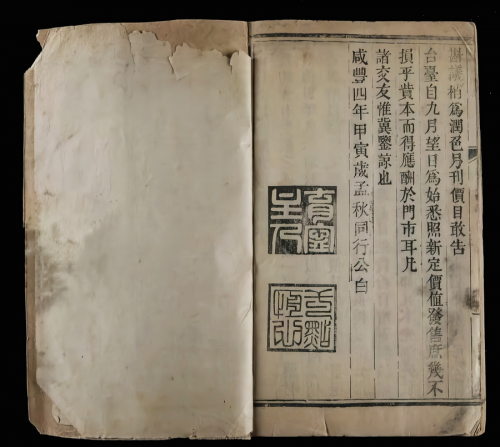 爲潤色月刊價目敢告
台臺自九月望日爲始悉照新定價值發售庶幾不
損乎貲本而得應酬於門市耳凡
諸交友惟冀鑒諒也
咸豐四年甲寅歲孟秋同行公白